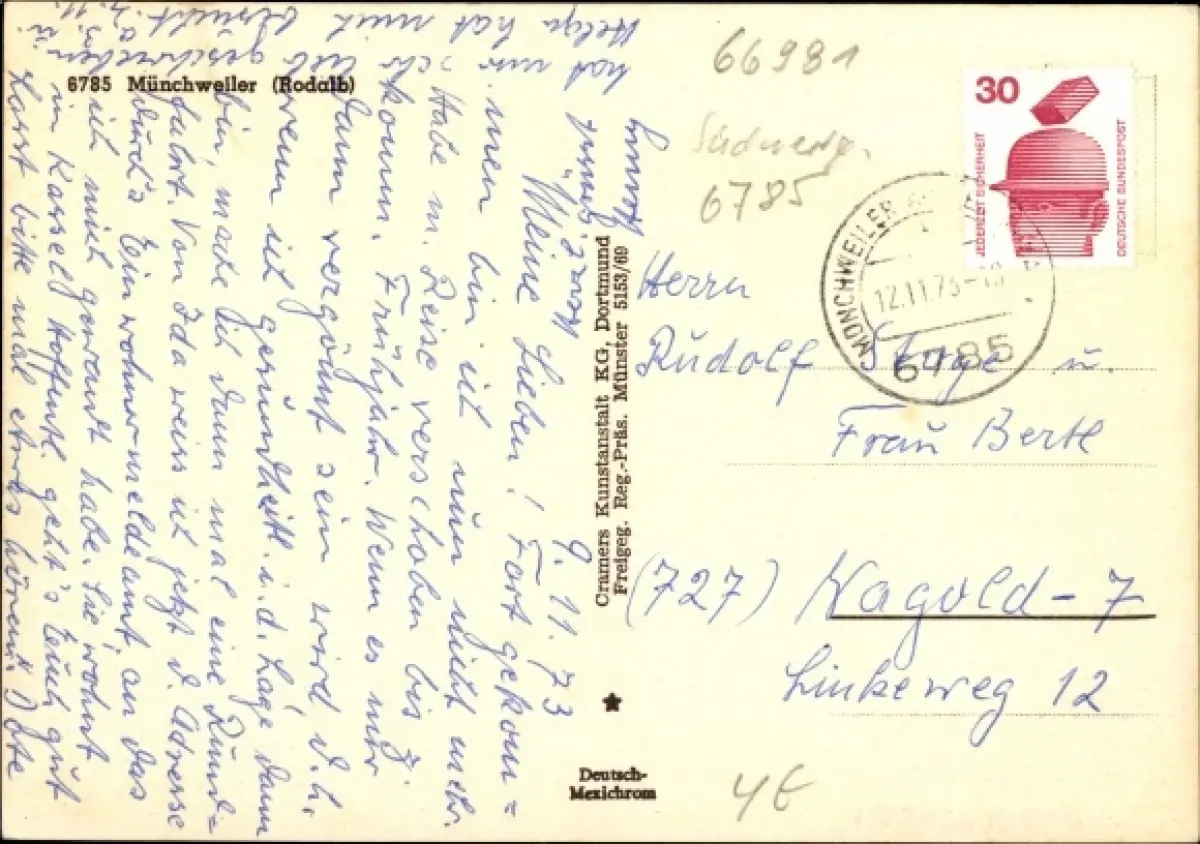 6785 Münchweiler (Rodalb)
9. 11. 73
Meine Lieben! Fort gekom=
men bin ich nun nicht mehr.
Habe m. Reise verschoben bis z.
kommen. Frühjahr. Wenn es mir
dann vergönnt sein wird d.h.
wenn ich gesundheitl. i. d. Lage dann
bin, mache ich dann mal eine Rund=
fahrt. Von Ida weiss ich jetzt d. Adresse
durch's Einwohnermeldeamt, an das
ich mich gewandt habe. Sie wohnt
in Kassel. Hoffentl. geht's Euch gut
Lasst bitte mal etwas hören!
hat mir
geschrieben
Helga hat mich
besucht
Cramers Kunstanstalt KG, Dortmund
Freigeg. Reg.-Präs. Münster 5153/69
Deutsch-
Mexichrom
66981
6785
30
JEDERZEIT SICHERHEIT
DEUTSCHE BUNDESPOST
MÜNCHWEILER
12.11.73
6785
Herrn
Rudolf u.
Frau Bertl
(727) Nagold-7
Linkeweg 12
4€